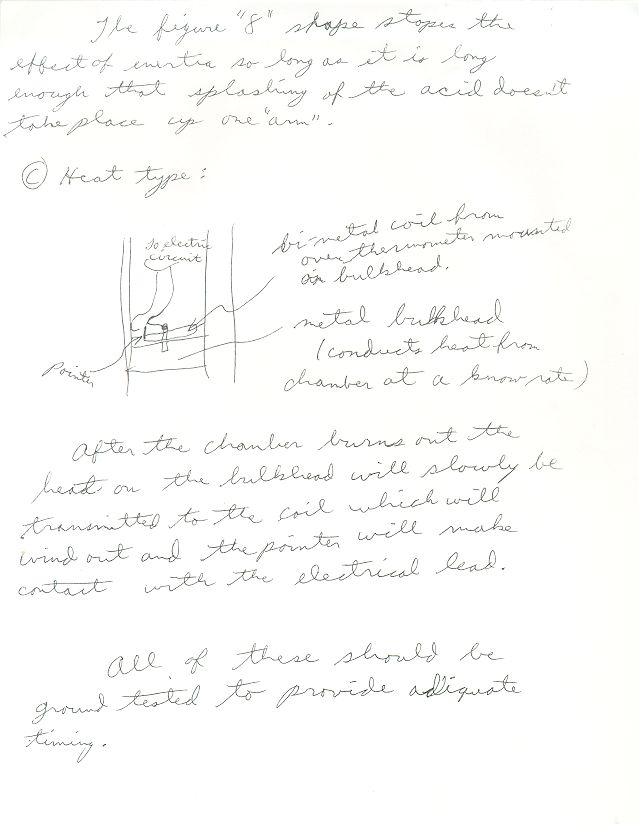 The figure "8" shape stopes the
effect of enertia so long as it is long
enough that splashing of the acid doesn't
take place up one "arm".
Ⓒ Heat type:
To electric
circuit
bi-metal coil from
over thermometer mounted
in bulkhead.
metal bulkhead
(conducts heat from
chamber at a know rate)
Pointer
After the chamber burns out the
heat on the bulkhead will slowly be
transmitted to the coil which will
wind out and the pointer will make
contact with the electrical lead.
All of these should be
ground tested to provide adiquate
timing.